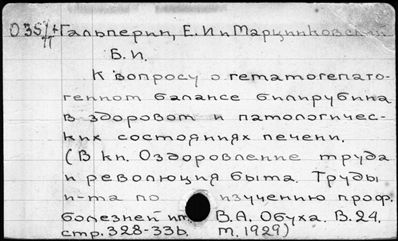 035/п Гальперин, Е. И и Марцинковский
Б. И.
К вопросу о гематогепато-
генном балансе билирубина
в здоровом и патологичес-
ких состояниях печени.
(В кн. Оздоровление труда
и революция быта. Труды
и-та по изучению проф.
болезней им. В.А. Обуха. В. 24.
стр. 328-336. М, 1929)